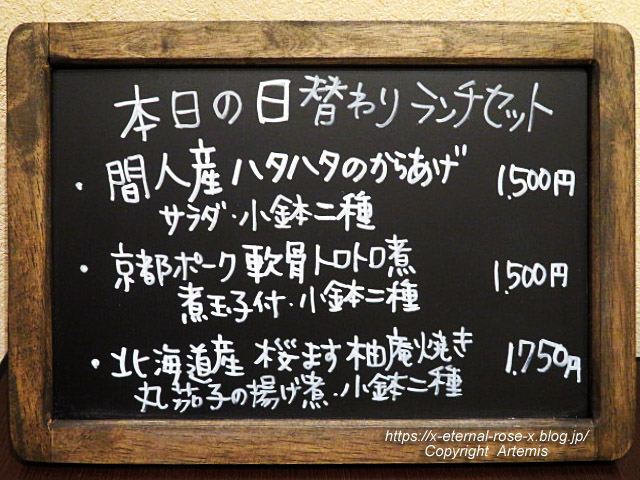 本日の日替わりランチセット
・間人産ハタハタのからあげ 1.500円
サラダ・小鉢二種
・京都ポーク軟骨トロトロ煮 1.500円
煮玉子付・小鉢二種
・北海道産 桜ます柚庵焼き 1.750円
丸茄子の揚げ煮・小鉢二種
https://x-eternal-rose-x.blog.jp/
Copyright Artemis